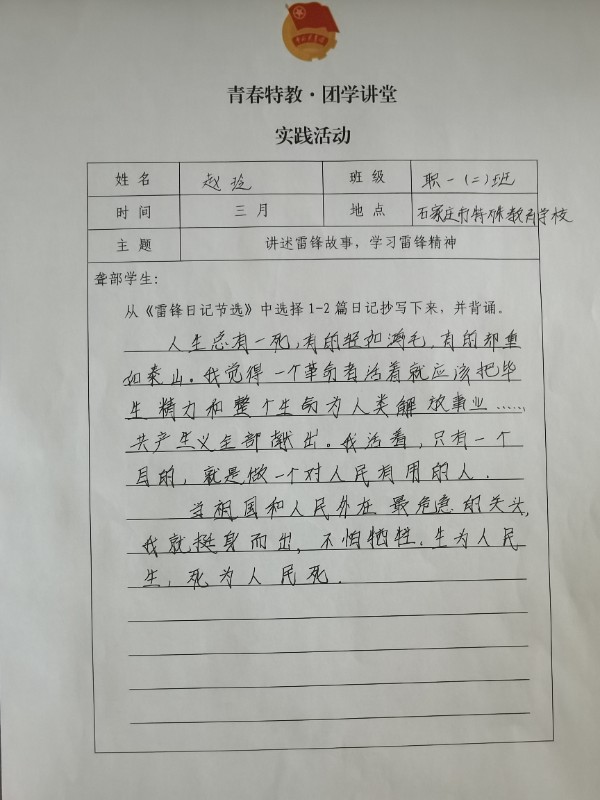 青春特教·团学讲堂
实践活动
姓名 赵玲 班级 职一(二)班
时间 三月 地点 石家庄市特殊教育学校
主题 讲述雷锋故事,学习雷锋精神
聋部学生:
从《雷锋日记节选》中选择1-2篇日记抄写下来,并背诵。
人生总有一死,有的轻如鸿毛,有的却重
如泰山。我觉得一个革命者活着就应该把毕
生精力和整个生命为人类解放事业……
共产主义全部献出。我活着,只有一个
目的,就是做一个对人民有用的人.
当祖国和人民处在最危急的关头,
我就挺身而出,不怕牺牲.生为人民
生,死为人民死.